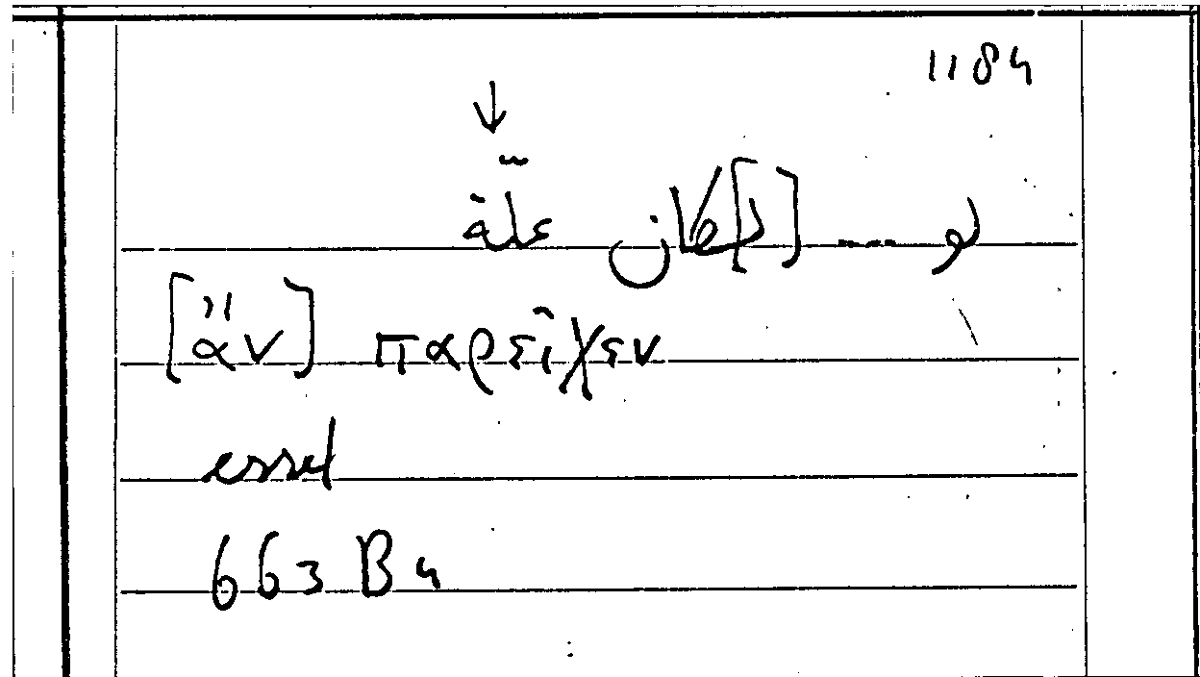 1184
↓
لو .... [ل]كان علة
[ἂν] παρεῖχεν
esset
663 B 4